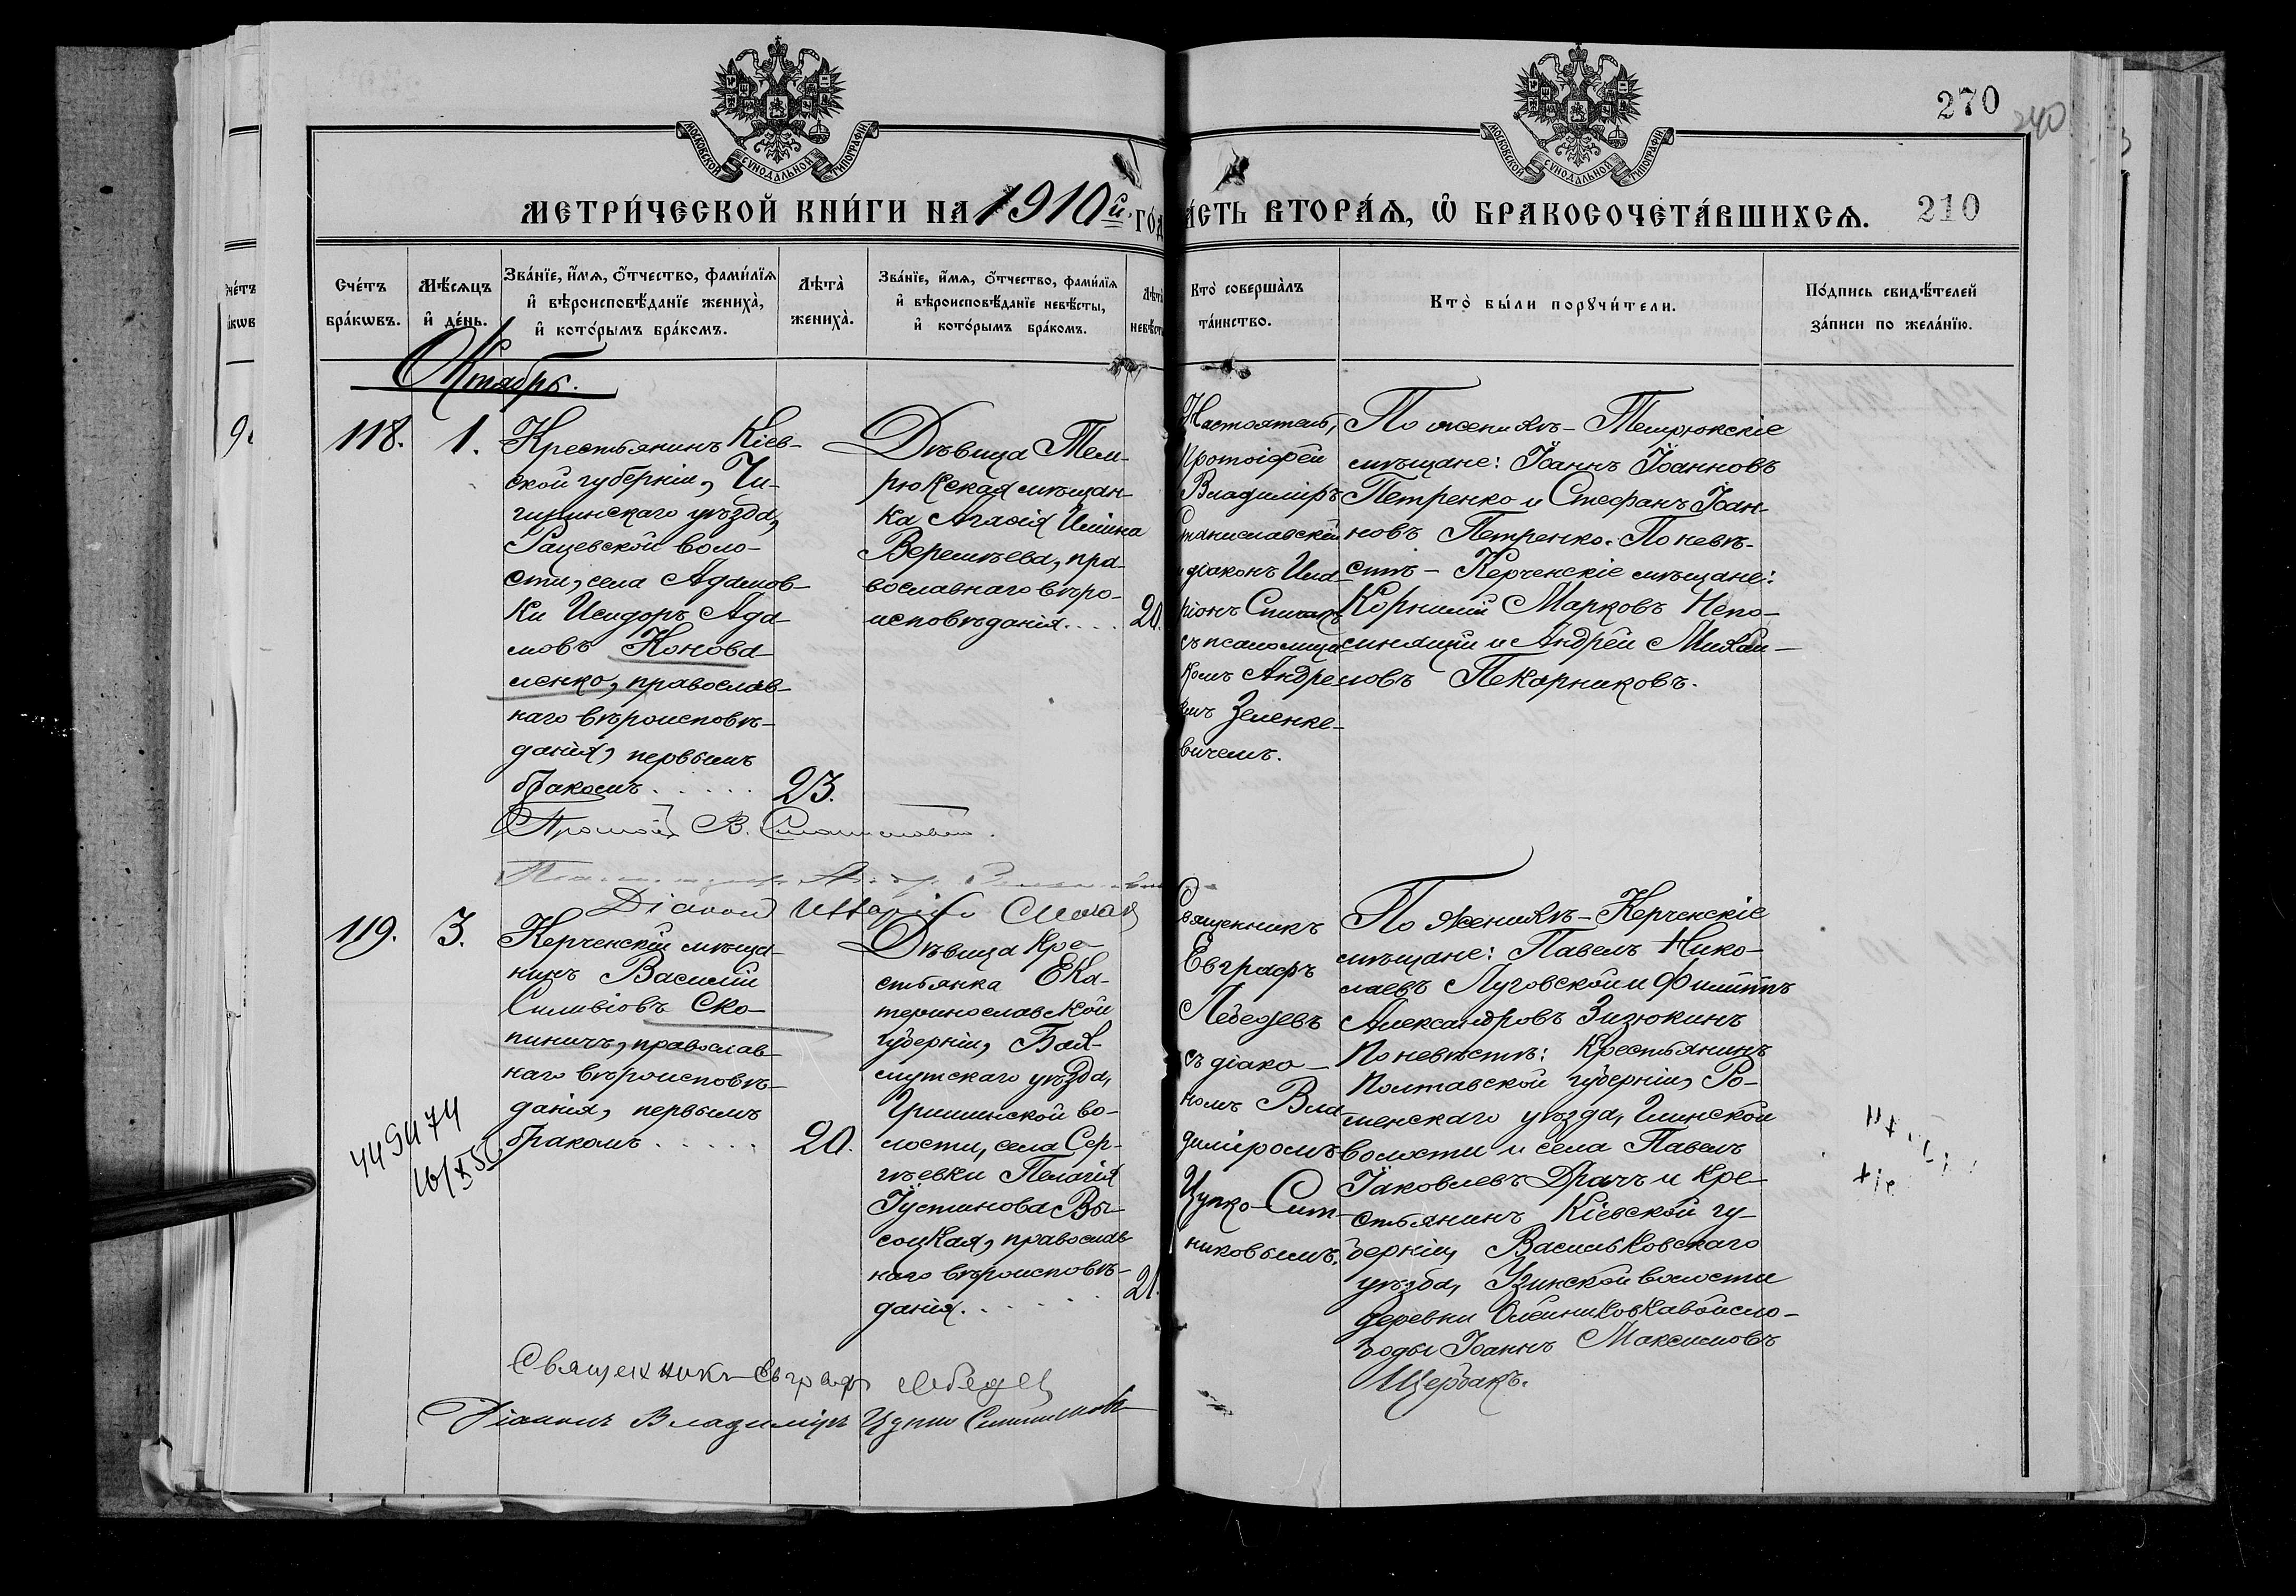 МОСКОВСКОЙ СѴНОДАЛЬНОЙ ТИПОГРАФІИ
МОСКОВСКОЙ СѴНОДАЛЬНОЙ ТИПОГРАФІИ
270
240
МЕТРИ́ЧЕСКОЙ КНИ́ГИ НА 1910й ГО́Д
А́СТЬ ВТОРА́Я, Ѡ҆ БРАКОСОЧЕТА́ВШИХСЯ. 210
Сче́тъ
бра́кѡвъ.
Мѣ́сяцъ
и҆ де́нь.
Зва́нїе, и҆́мя, ѻ҆́тчество, фами́лїя
и҆ вѣроисповѣ́данїе жениха̀,
и҆ кото́рымъ бра́комъ.
Лѣта̀
жениха̀.
Зва́нїе, и҆́мя, ѻ҆́тчество, фами́лїя
и҆ вѣроисповѣ́данїе невѣ́сты,
и҆ кото́рымъ бра́комъ.
Лѣта̀
невѣ́ст
Кто̀ соверша́лъ
та́инство.
Кто̀ бы́ли пору́чи́тели.
По́дпись свидѣ́телей
за́писи по жела́нїю.
Октябрь.
118.
1.
Крестьянинъ Кіев-
ской губерніи, Чи-
гиринскаго уѣзда,
Рацевской воло-
сти, села Адамов-
ки Исидоръ Ада-
мовъ Конова-
ленко, православ-
наго вѣроисповѣ-
данія, первымъ
бракомъ . . . . . 23.
Дѣвица Тем-
рюкская мѣщан-
ка Агаѳія Ильина
Верещѣева, пра-
вославнаго вѣро-
исповѣданія. . . . 20.
Настоятель,
Протоіерей
Владиміръ
Станиславскій
и діаконъ Ила-
ріонъ Спичакъ
съ псаломщи-
комъ Андре-
емъ Зеленке-
вичемъ.
По женихѣ - Темрюкскіе
мѣщане: Іоаннъ Іоанновъ
Петренко и Стефанъ Іоан-
новъ Петренко. По невѣ-
стѣ - Керченскіе мѣщане:
Корнилій Марковъ Непо-
мнящій и Андрей Михай-
ловъ Пекарниковъ.
Протоіер. В. Станиславскій.
Діаконъ Иларіонъ Спичакъ
119.
3.
Керченскій мѣща-
нинъ Василій
Сильвіовъ Ско-
пиничъ, православ-
наго вѣроисповѣ-
данія, первымъ
бракомъ . . . . . 20.
449474
16/X 5
Дѣвица кре-
стьянка Ека-
теринославской
губерніи, Бах-
мутскаго уѣзда,
Гришинской во-
лости, села Сер-
гѣевки Пелагія
Іустинова Вы-
соцкая, православ-
наго вѣроисповѣ-
данія. . . . . . 21.
Священникъ
Евграфъ
Лебедевъ
съ діако-
номъ Вла-
диміромъ
Цупко-Сит-
никовымъ.
По женихѣ - Керченскіе
мѣщане: Павелъ Нико-
лаевъ Луговской и Филиппъ
Александровъ Зизюкинъ
По невѣстѣ: крестьянинъ
Полтавской губерніи, Ро-
менскаго уѣзда, Глинской
волости и села Павелъ
Іаковлевъ Драчъ и кре-
стьянинъ Кіевской гу-
берніи, Васильковскаго
уѣзда, Узинской волости
деревни Олейниковкавой сло-
боды Іоаннъ Максимовъ
Щербакъ.
Священникъ Евграфъ Лебедевъ
Діаконъ Владиміръ Цупко Ситниковъ